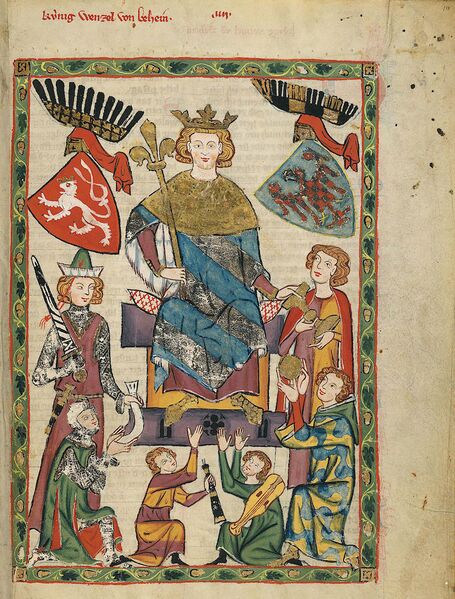 kv́nig wenzel von behein.
.iiij.